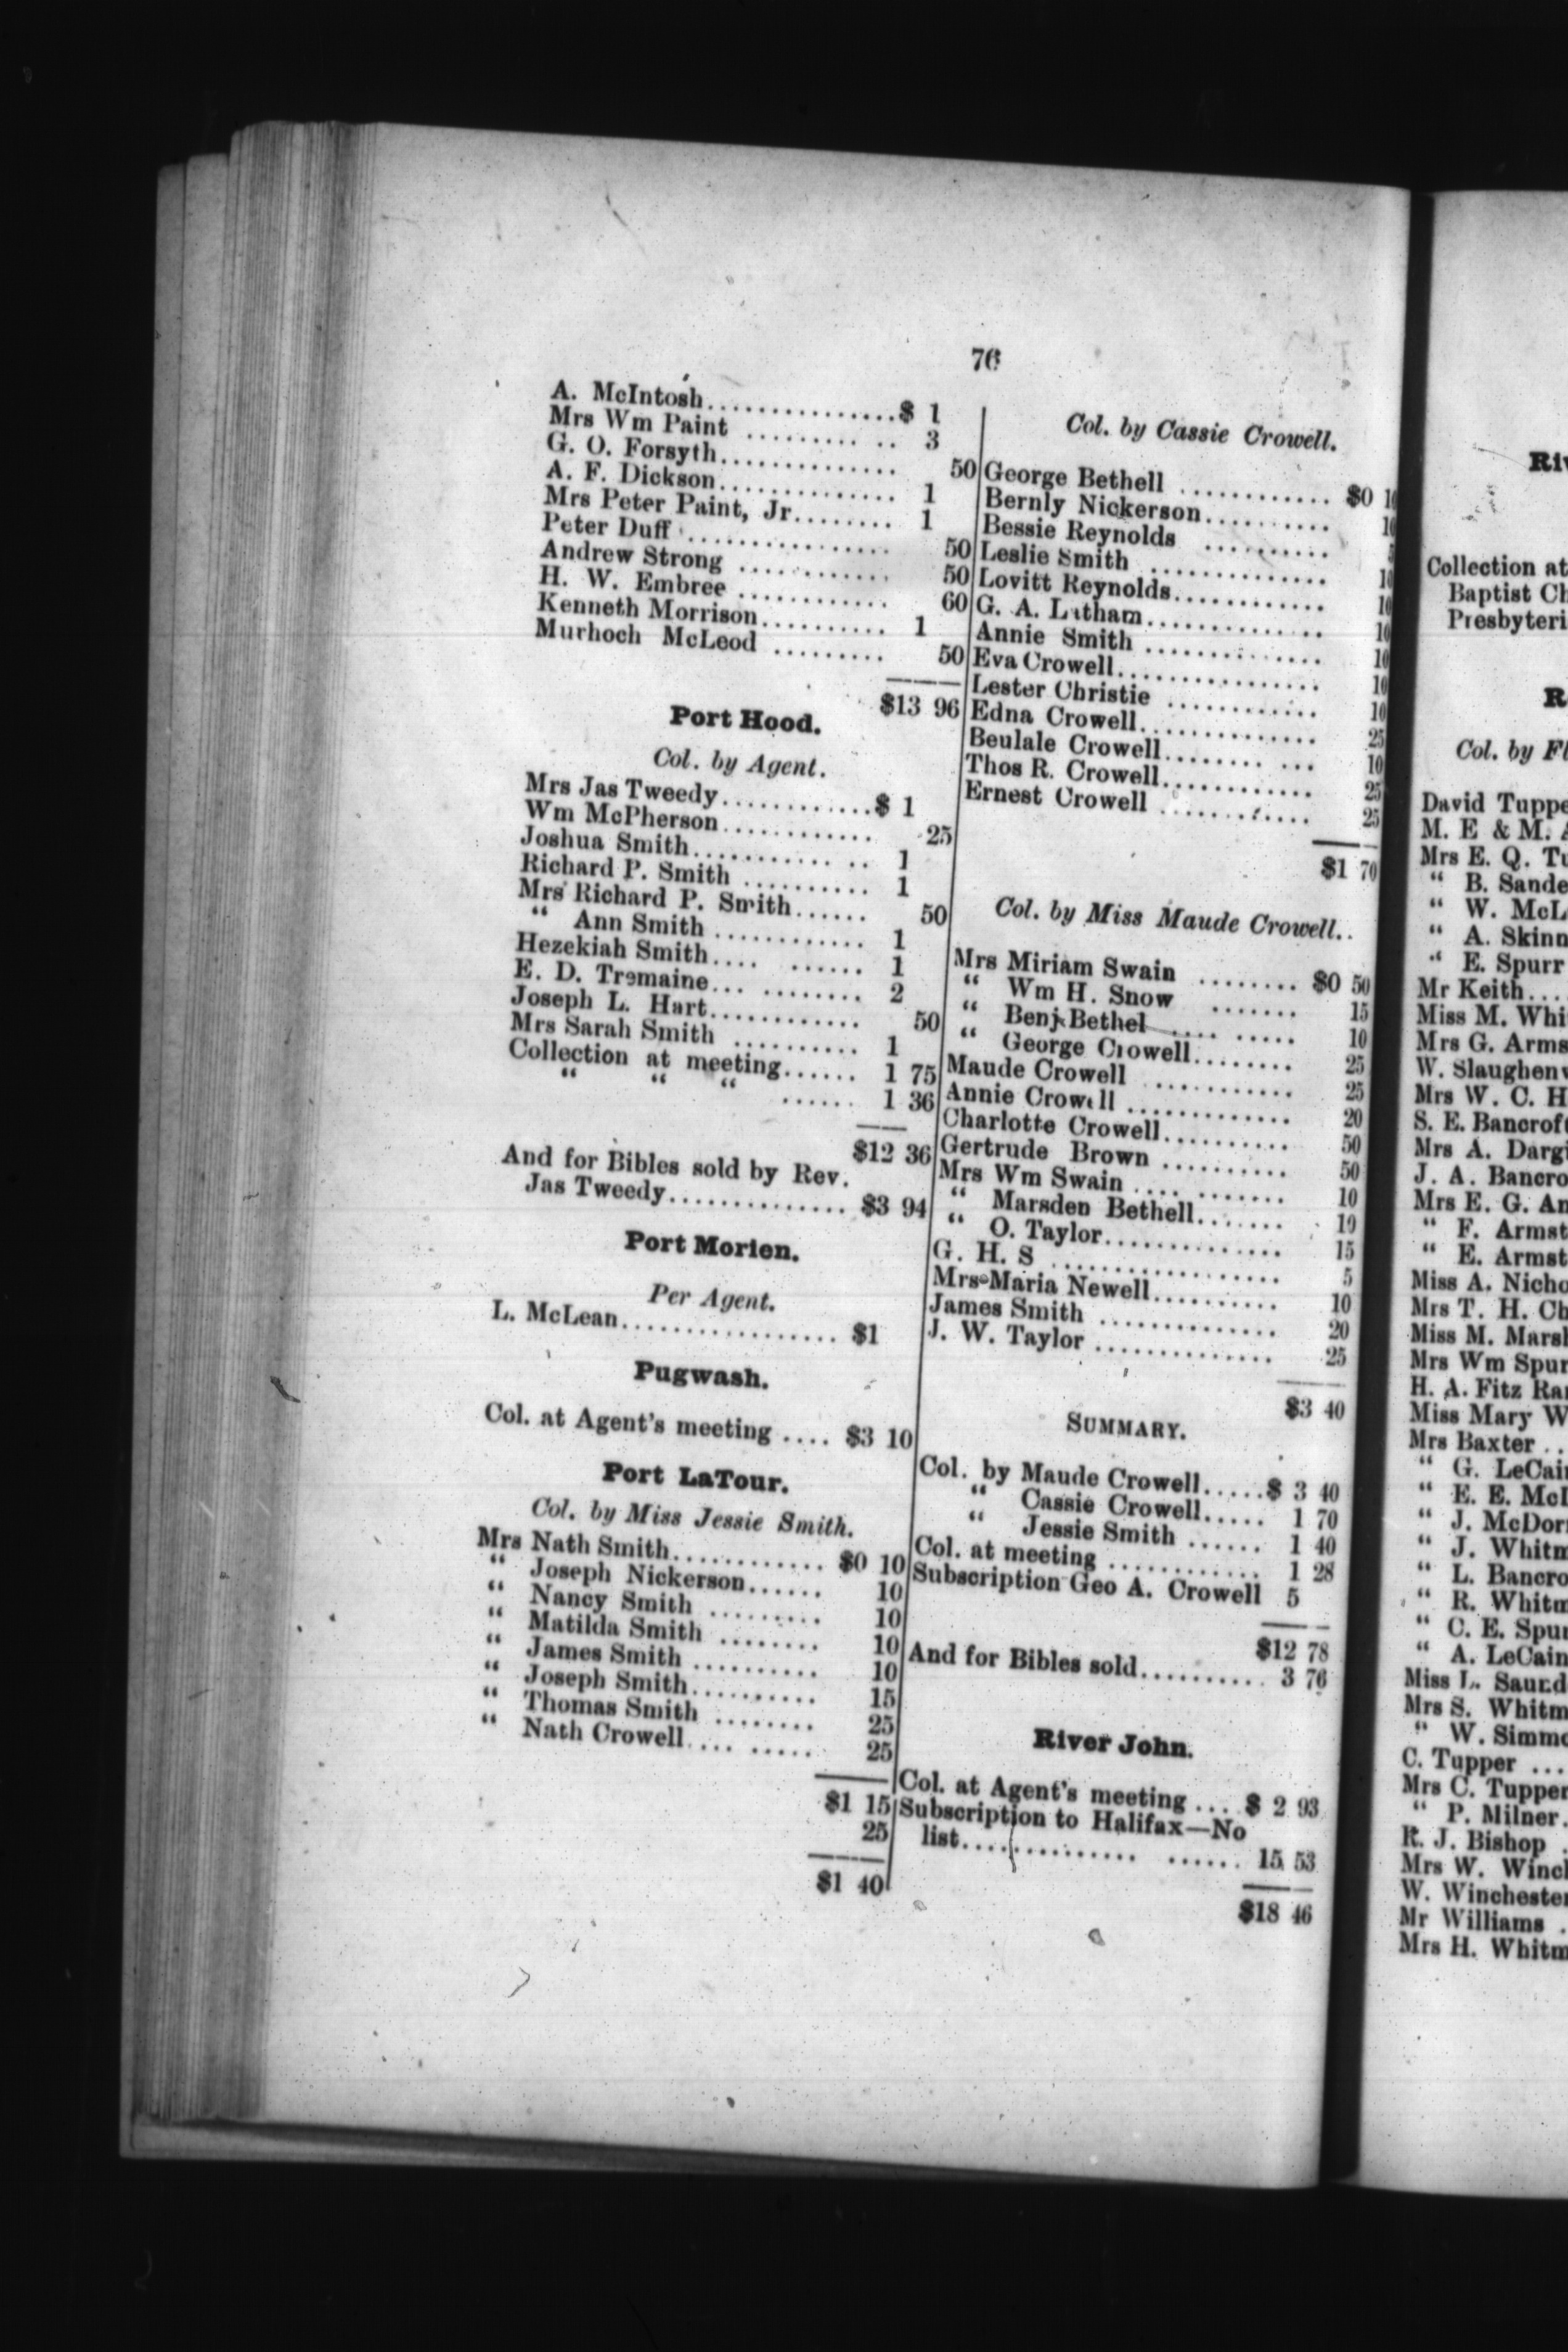 76
A. McIntosh...............$ 1
Mrs Wm Paint ......... .. 3
G. O. Forsyth.............. 50
A. F. Dickson.............. 1
Mrs Peter Paint, Jr........ 1
Peter Duff ................ 50
Andrew Strong ............ 50
H. W. Embree ............ 60
Kenneth Morrison.......... 1
Murhoch McLeod ......... 50
$13 96
Port Hood.
Col. by Agent.
Mrs Jas Tweedy............$ 1
Wm McPherson............ 25
Joshua Smith........... .. 1
Richard P. Smith .......... 1
Mrs Richard P. Smith...... 50
“ Ann Smith ............ 1
Hezekiah Smith.... ...... 1
E. D. Tremaine... ........ 2
Joseph L. Hart............ 50
Mrs Sarah Smith .......... 1
Collection at meeting...... 1 75
“ “ “ ...... 1 36
$12 36
And for Bibles sold by Rev.
Jas Tweedy.............. $3 94
Port Morien.
Per Agent.
L. McLean................. $1
Pugwash.
Col. at Agent's meeting .... $3 10
Port LaTour.
Col. by Miss Jessie Smith.
Mrs Nath Smith............ $0 10
“ Joseph Nickerson...... 10
“ Nancy Smith ......... 10
“ Matilda Smith ........ 10
“ James Smith .......... 10
“ Joseph Smith.......... 15
“ Thomas Smith ........ 25
“ Nath Crowell.... ..... 25
$1 15
25
$1 40
Col. by Cassie Crowell.
George Bethell ............ $0 10
Bernly Nickerson.......... 10
Bessie Reynolds .......... 5
Leslie Smith .............. 10
Lovitt Reynolds............ 10
G. A. Latham.............. 10
Annie Smith .............. 10
Eva Crowell................ 10
Lester Christie ............ 10
Edna Crowell.............. 25
Beulale Crowell........ ... 10
Thos R. Crowell............ 25
Ernest Crowell ............ 25
$1 70
Col. by Miss Maude Crowell..
Mrs Miriam Swain ........ $0 50
“ Wm H. Snow ....... 15
“ Benj Bethel .... ..... 10
“ George Crowell........ 25
Maude Crowell ............ 25
Annie Crowell ............. 20
Charlotte Crowell.......... 50
Gertrude Brown .......... 50
Mrs Wm Swain .... ....... 10
“ Marsden Bethell....... 10
“ O. Taylor.............. 15
G. H. S .................. 5
Mrs Maria Newell.......... 10
James Smith .............. 20
J. W. Taylor .............. 25
$3 40
SUMMARY.
Col. by Maude Crowell.....$ 3 40
“ Cassie Crowell..... 1 70
“ Jessie Smith ...... 1 40
Col. at meeting ............ 1 28
Subscription Geo A. Crowell 5
$12 78
And for Bibles sold.......... 3 76
River John.
Col. at Agent's meeting ... $ 2 93
Subscription to Halifax—No
list.............. ...... 15 53
$18 46
Collection at
Baptist
Col. by
David
M. E & M.
Mrs E. Q.
“ B.
“ W.
“ A.
“ E. Spurr
Mr Keith...
Miss M.
Mrs G.
W.
Mrs W. C.
S. E. Bancroft
Mrs A.
J. A.
Mrs E. G.
“ F.
“ E.
Miss A.
Mrs T. H.
Miss M.
Mrs Wm
H. A. Fitz
Miss Mary
Mrs Baxter ..
“ G.
“ E. E.
“ J.
“ J.
“ L.
“ R.
“ C. E.
“ A. LeCain
Miss L.
Mrs S.
“ W.
C. Tupper ...
Mrs C. Tupper
“ P. Milner.
R. J. Bishop .
Mrs W.
W. Winchester
Mr Williams .
Mrs H.